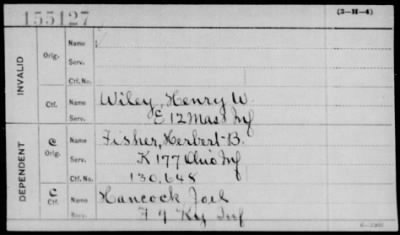 155127
(3-H-4)
INVALID
Orig.
Name
Serv.
Ctf. No.
Ctf.
Name Wiley, Henry W.
Serv. E 12 Mass Inf
DEPENDENT
C
Orig.
Name Fisher, Herbert B.
Serv. K 177 Ohio Inf
Ctf. No. 130,648
C
Ctf.
Name Hancock Joel
Serv. F 7 Ky Inf